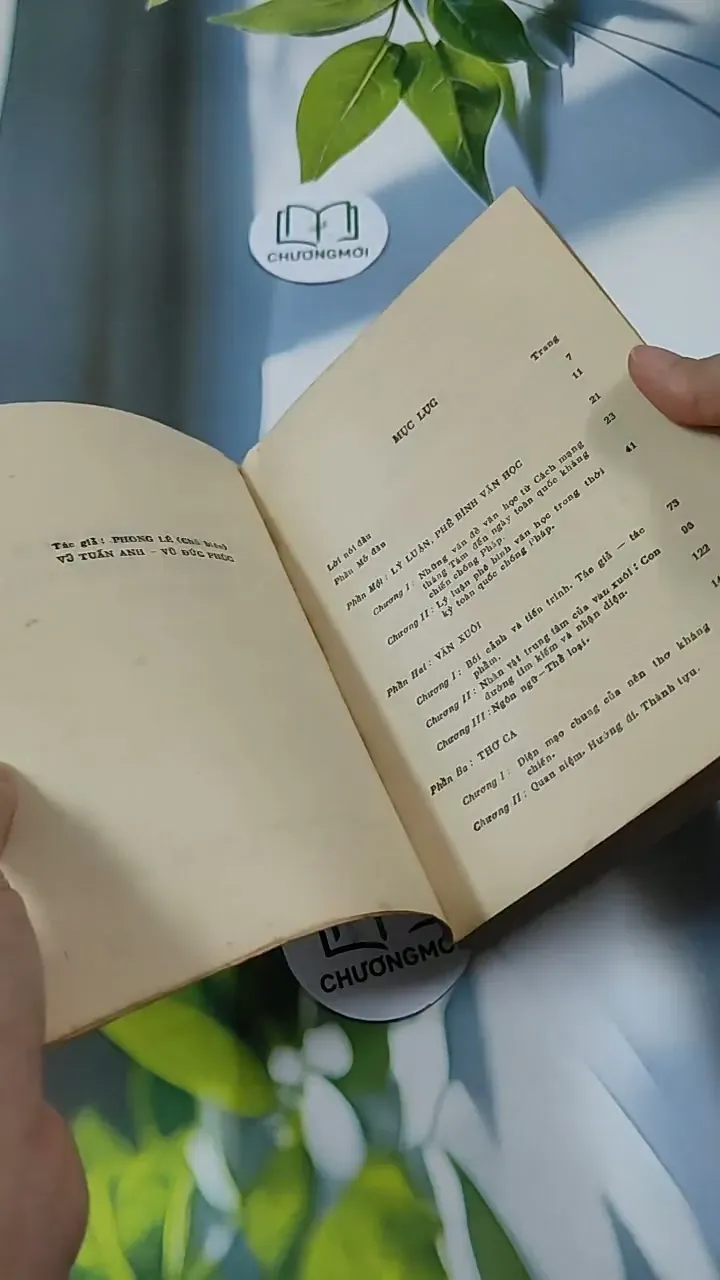 CHƯƠNGMỚI
Tác giả: PHONG LÊ (Chủ biên)
VŨ TUẤN ANH - VŨ ĐỨC PHÚC
MỤC LỤC
Trang
Lời nói đầu 7
Phần Mở đầu 11
Phần Một: LÝ LUẬN, PHÊ BÌNH VĂN HỌC 21
Chương I: Những vấn đề văn học từ Cách mạng 23
tháng Tám đến ngày toàn quốc kháng
chiến chống Pháp.
Chương II: Lý luận phê bình văn học trong thời 41
kỳ toàn quốc chống Pháp.
Phần Hai: VĂN XUÔI
Chương I: Bối cảnh và tiến trình. Tác giả — tác 73
phẩm.
Chương II: Nhân vật trung tâm của văn xuôi: Con 93
đường tìm kiếm và nhận diện.
Chương III: Ngôn ngữ—Thể loại. 122
Phần Ba: THƠ CA
Chương I: Diện mạo chung của nền thơ kháng
chiến.
Chương II: Quan niệm. Hướng đi. Thành tựu.
CHƯƠNGMỚ